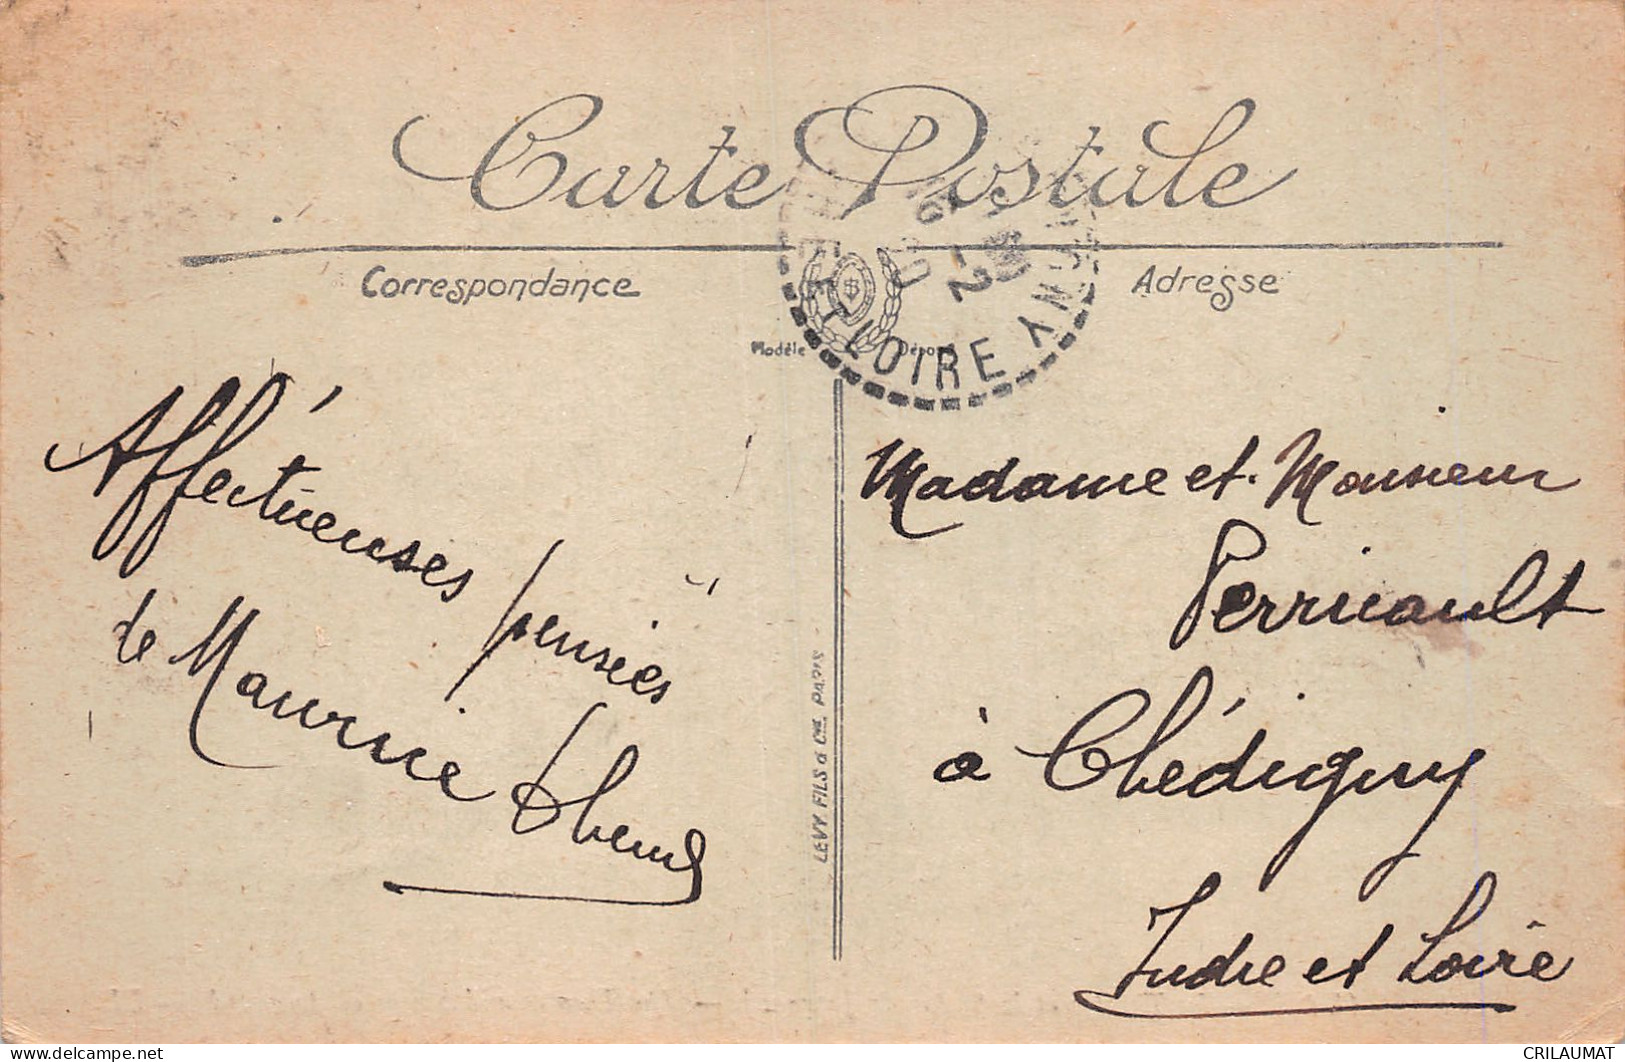 Carte Postale
Correspondance
Adresse
Modèle Déposé
LOIRE
Affectueuses pensées
de Maurice
LEVY FILS & CIE. PARIS
Madame et Monsieur
Perricault
à Chédigny
Indre et Loire
CRILAUMAT